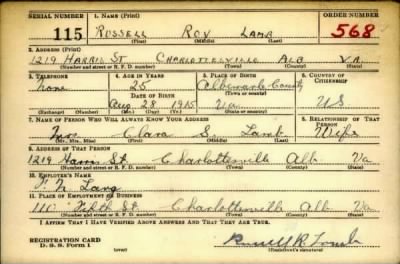 SERIAL NUMBER 1. NAME (Print) ORDER NUMBER
115 RUSSELL ROY LAMB 568
(First) (Middle) (Last)
2. ADDRESS (Print)
1219 HARRIS ST CHARLOTTESVILLE ALB VA.
(Number and street or R. F. D. number) (Town) (County) (State)
3. TELEPHONE 4. AGE IN YEARS 5. PLACE OF BIRTH 6. COUNTRY OF CITIZENSHIP
none 25 Albemarle County
DATE OF BIRTH (Town or county)
Aug 28 1915 Va US
(Exchange) (Number) (Mo.) (Day) (Yr.) (State or country)
7. NAME OF PERSON WHO WILL ALWAYS KNOW YOUR ADDRESS 8. RELATIONSHIP OF THAT PERSON
Mrs. Clara S. Lamb Wife
(Mr., Mrs., Miss) (First) (Middle) (Last)
9. ADDRESS OF THAT PERSON
1219 Harris St. Charlottesville Alb Va
(Number and street or R. F. D. number) (Town) (County) (State)
10. EMPLOYER'S NAME
Lang
11. PLACE OF EMPLOYMENT OR BUSINESS
St. Charlottesville Alb Va
(Number and street or R. F. D. number) (Town) (County) (State)
I AFFIRM THAT I HAVE VERIFIED ABOVE ANSWERS AND THAT THEY ARE TRUE.
REGISTRATION CARD
D. S. S. Form 1 (over) Russell R. Lamb
(Registrant's signature)